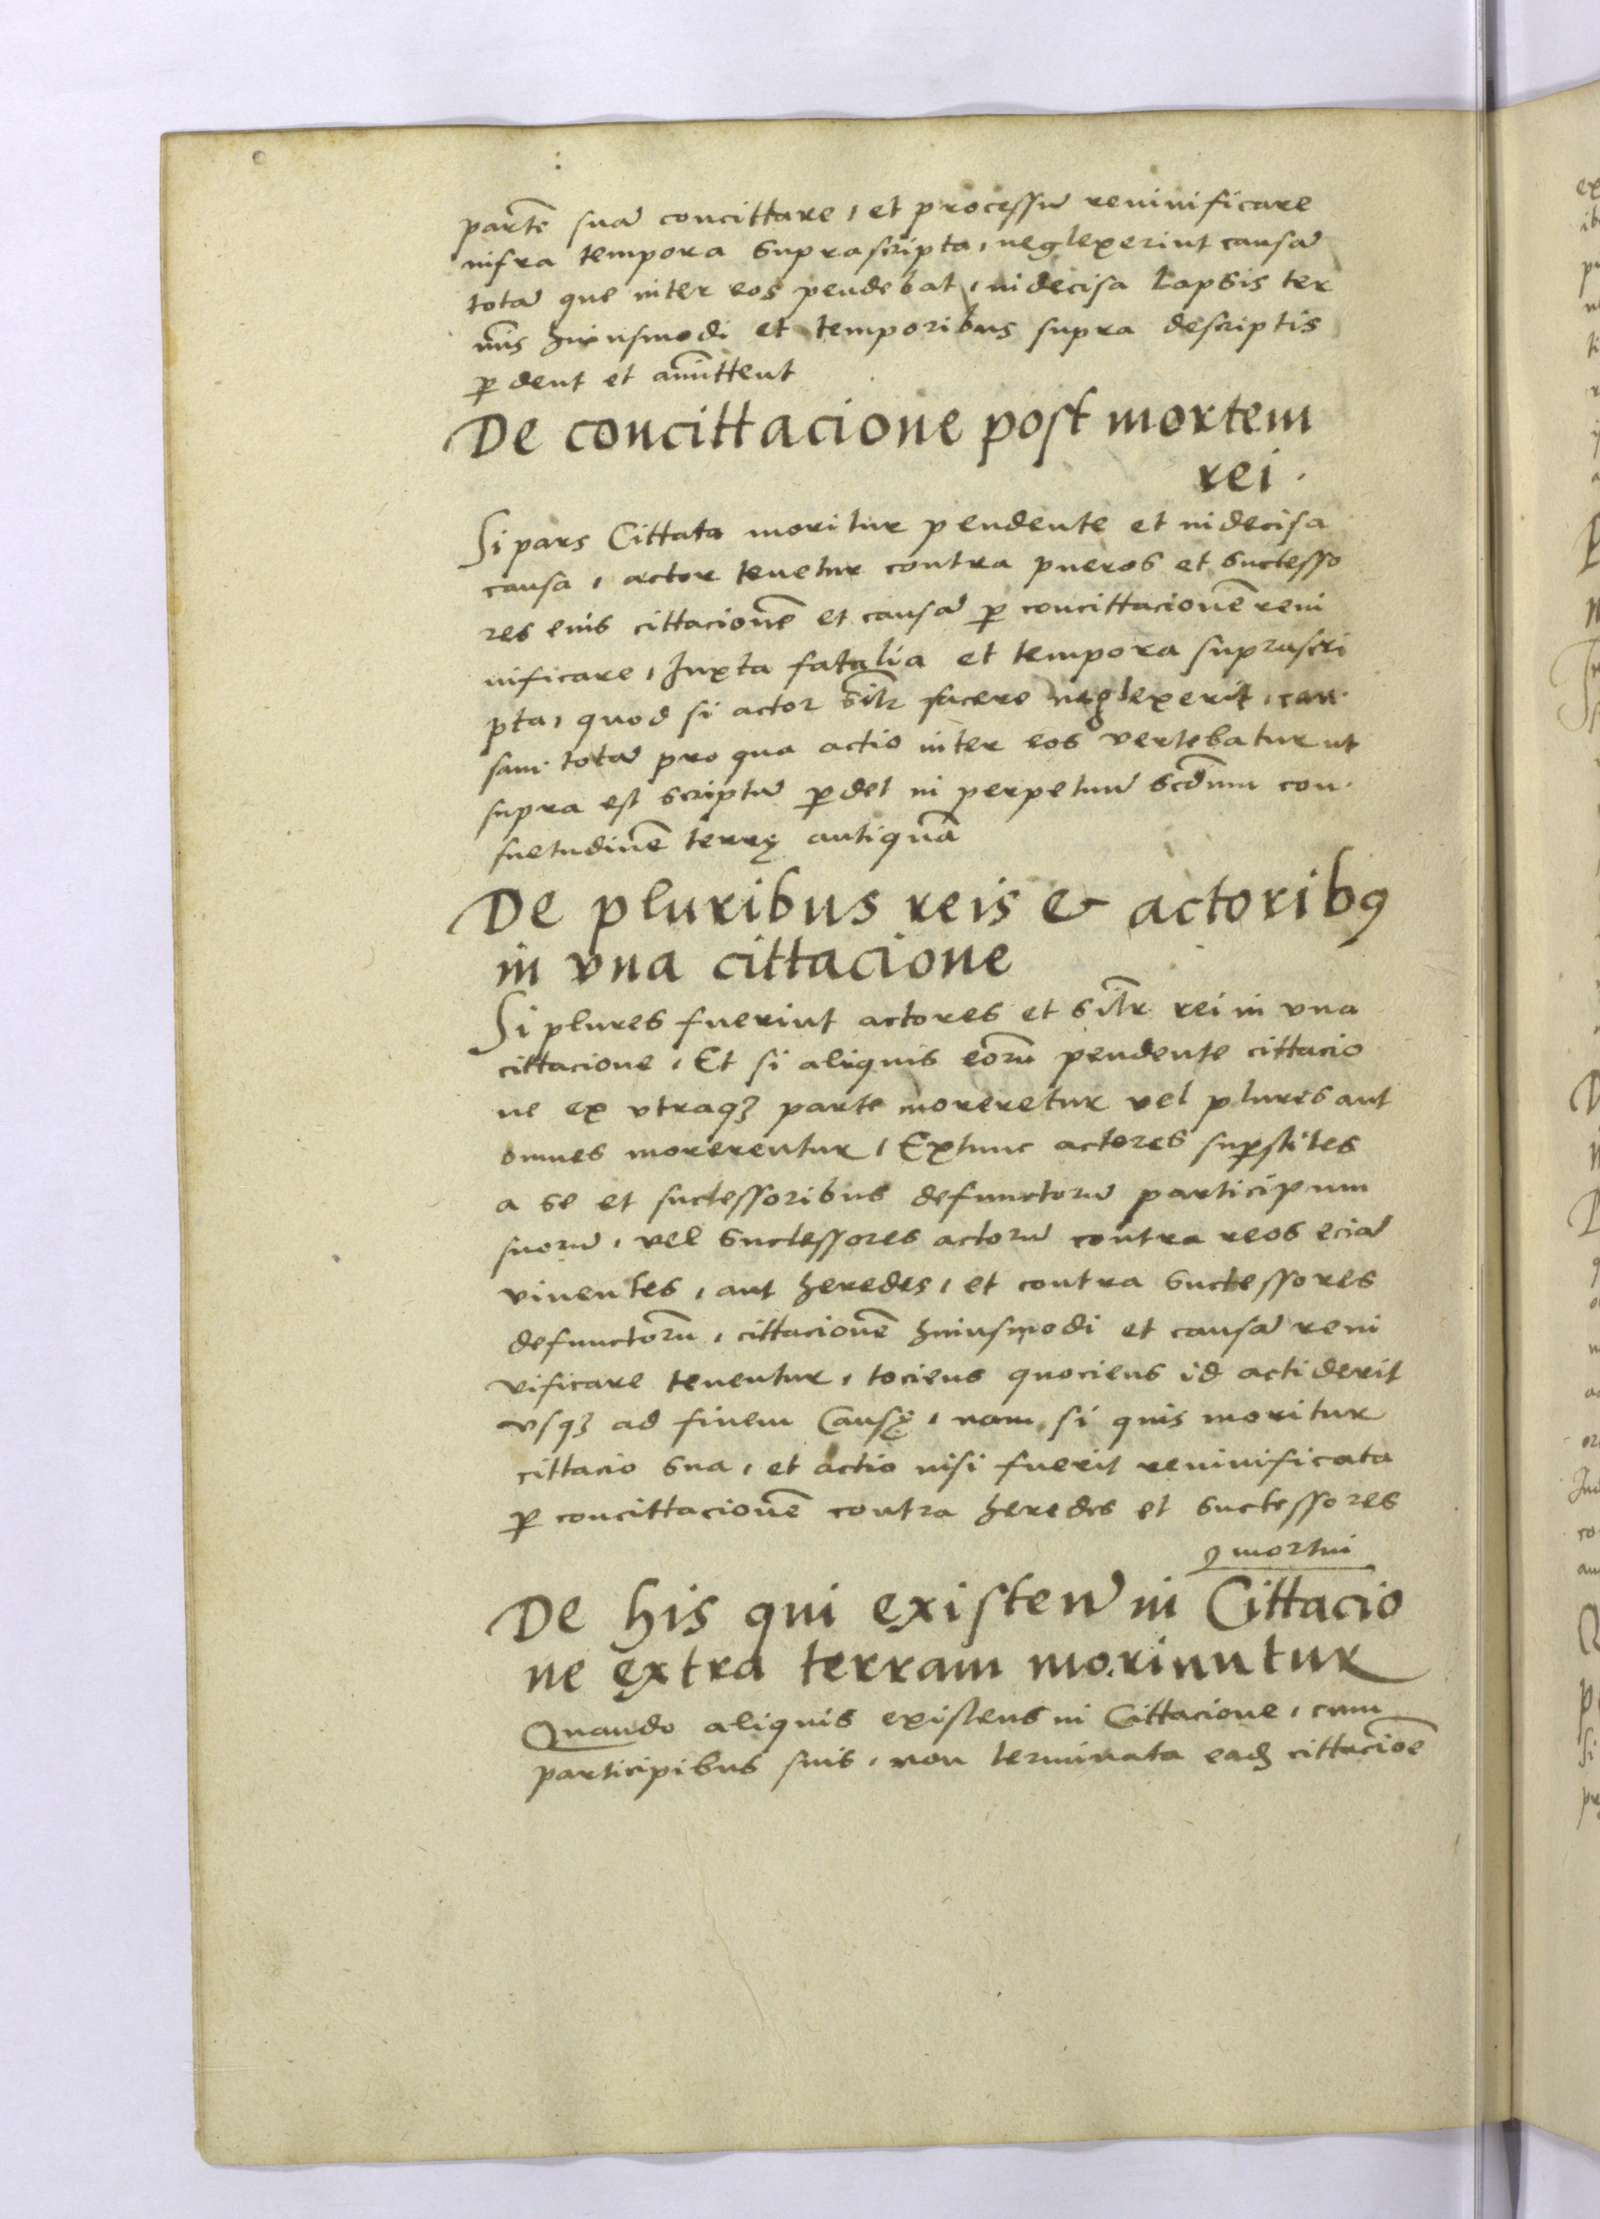 partē suā concittare, et processū reuiuificare
infra tempora suprascripta, neglexerint causā
totā que inter eos pendebat, indecisa Lapsis ter
mīs huiusmodi et temporibus supra descriptis
ꝑdent et amīttent
De concittacione post mortem
rei.
Si pars Cittata moritur pendente et indecisa
causa, actor tenetur contra pueros et successo
res eius cittacionē et causā ꝑ concittacionē reui
uificare, Juxta fatalia et tempora suprascri
pta, quod si actor sīlr facere neglexerit, cau
sam totā pro qua actio inter eos vertebatur ut
supra est scriptū ꝑdet in perpetuū scdm̄ con
suetudinē terrę antiquā
De pluribus reis & actoribꝯ
in vna cittacione
Si plures fuerint actores et sīlr rei in vna
cittacione, Et si aliquis eorū pendente cittacio
ne ex vtraqꝫ parte moreretur vel plures aut
omnes morerentur, Extunc actores suꝑstites
a se et successoribus defunctorū participum
suorū, vel successores actorū contra reos eciā
viuentes, aut heredes, et contra successores
defunctorū, cittacionē huiusmodi et causā reui
vificare tenentur, tociens quociens id acciderit
vsqꝫ ad finem Causę, nam si quis moritur
cittacio sua, et actio nisi fuerit reuiuificata
ꝑ concittacionē contra heredes et successores
mortui
De his qui existen̄ in Cittacio
ne extra terram moriuntur
Quando aliquis existens in Cittacione, cum
participibus suis, non terminata eadꝫ cittaciōe